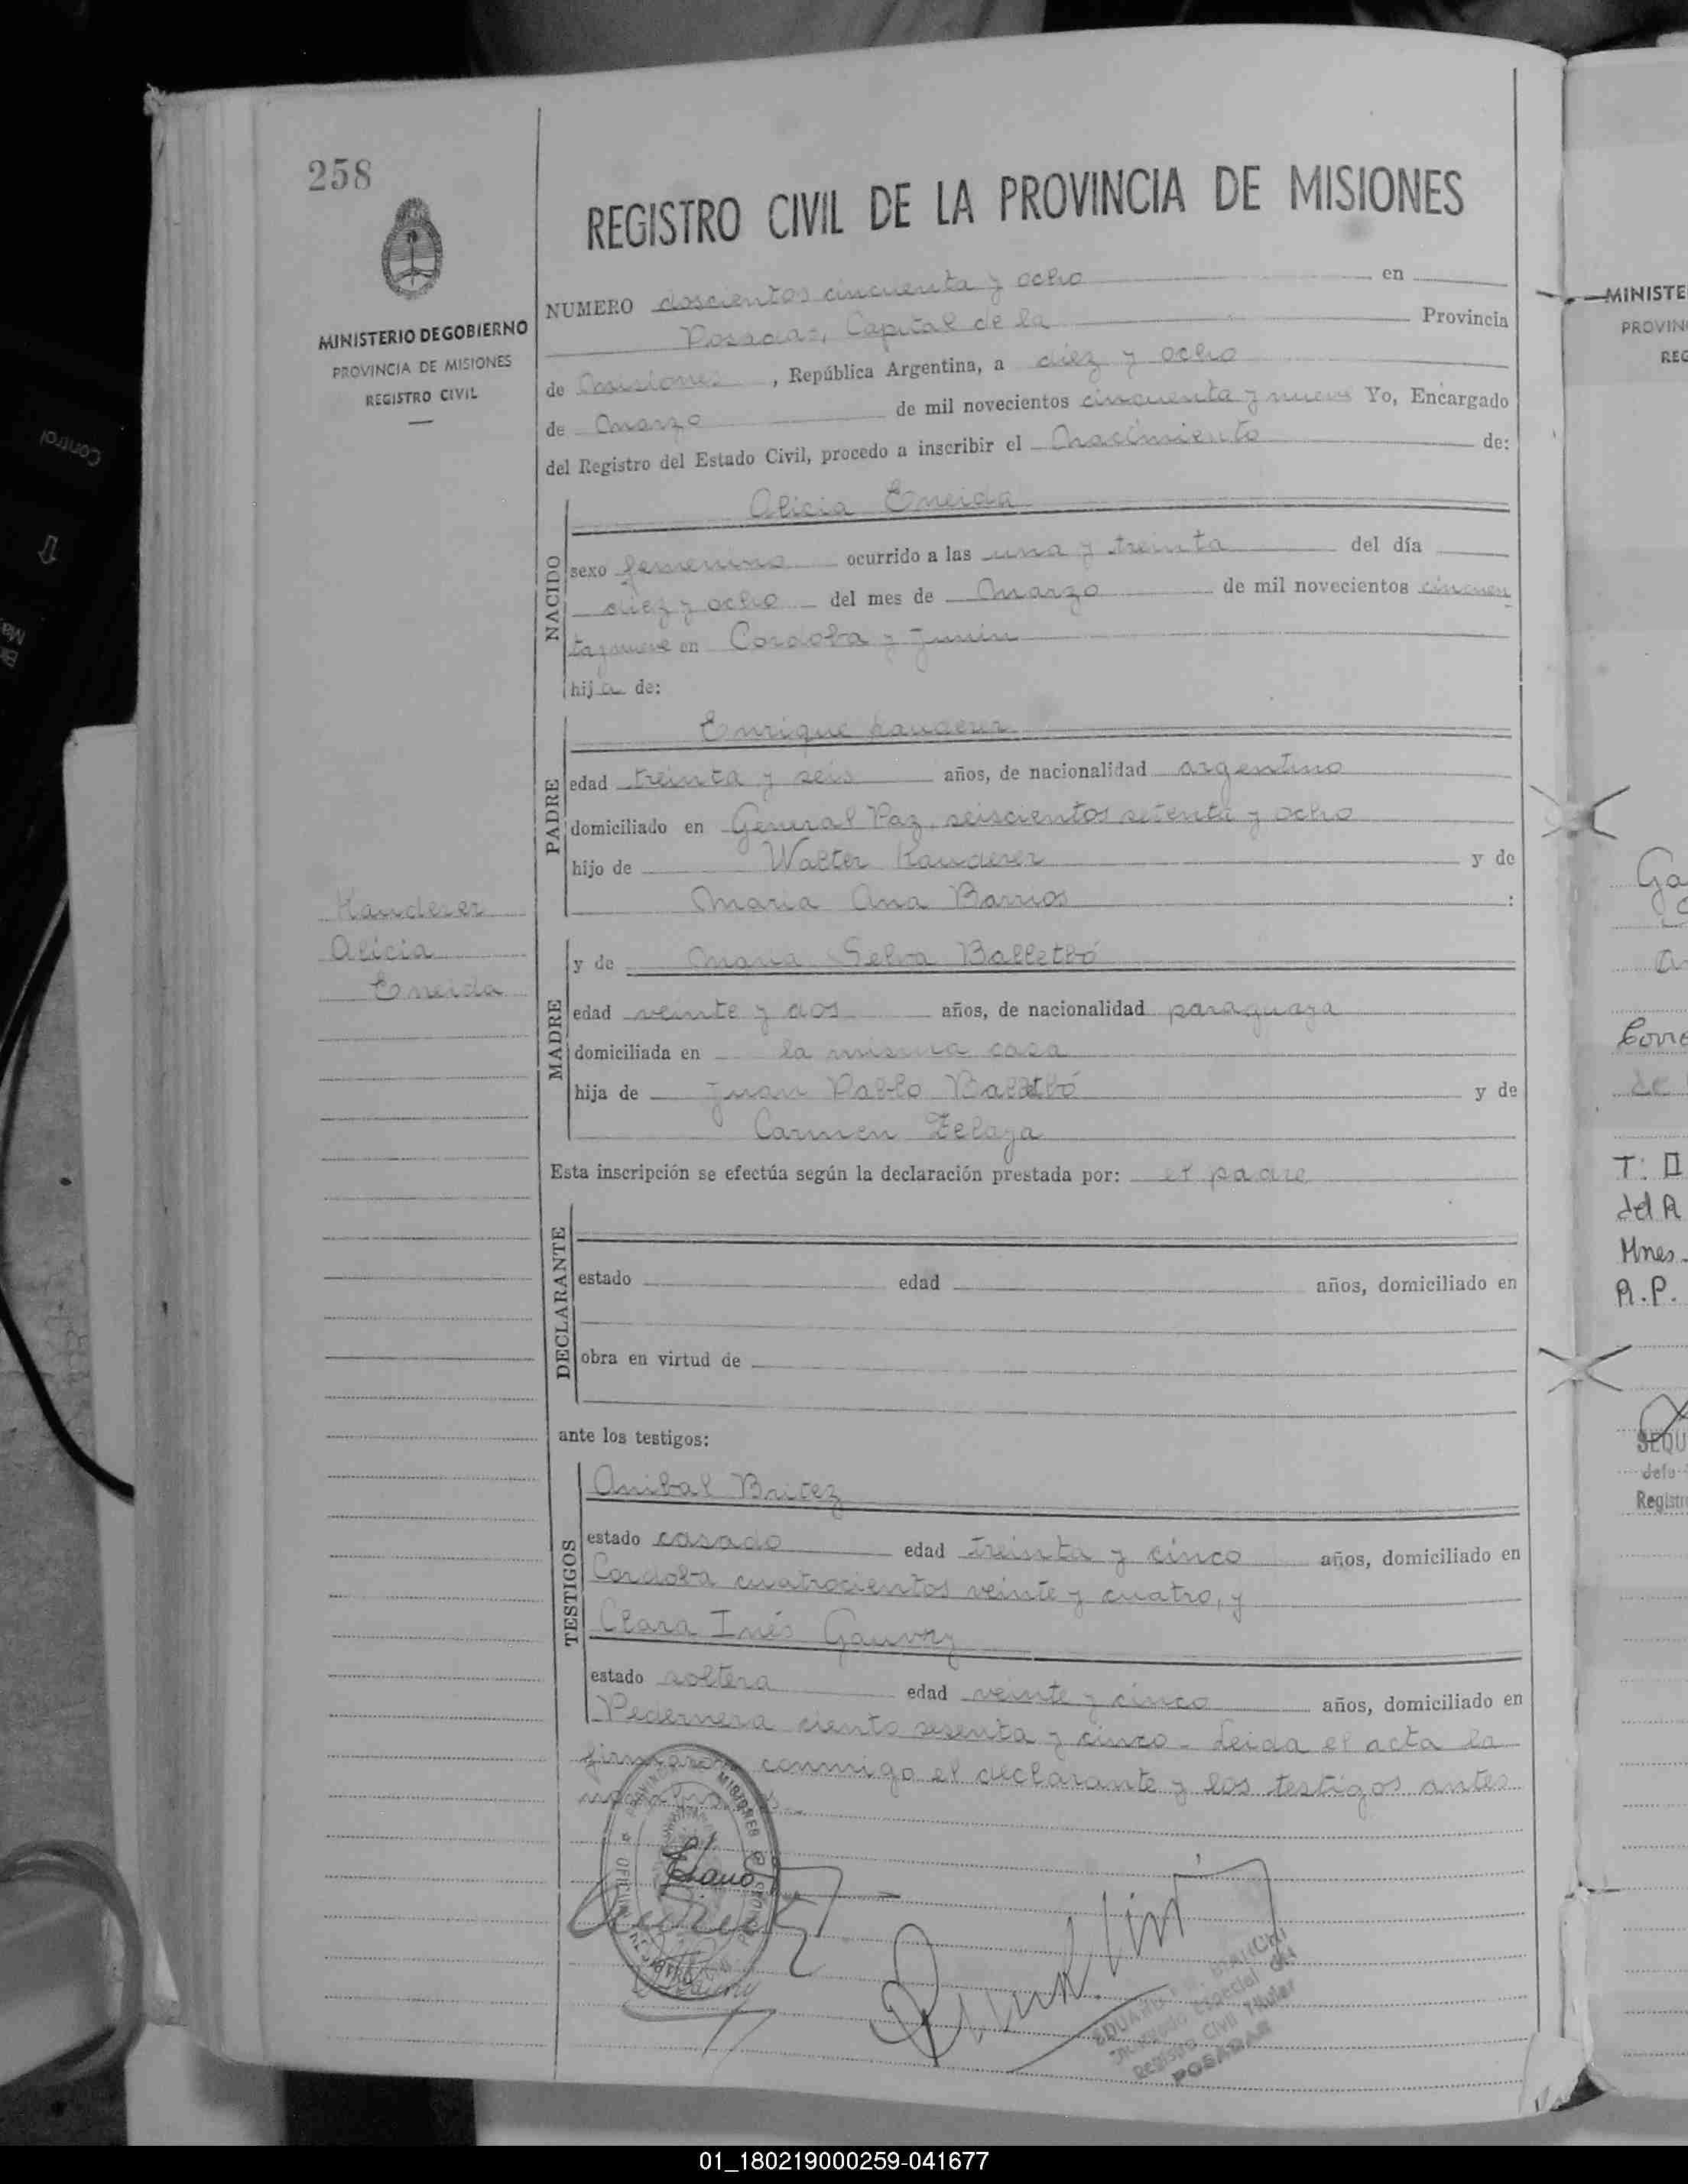 258
REGISTRO CIVIL DE LA PROVINCIA DE MISIONES
MINISTERIO DE GOBIERNO
PROVINCIA DE MISIONES
REGISTRO CIVIL
NUMERO doscientos cincuenta y ocho en
Posadas, Capital de la Provincia
de Misiones, República Argentina, a diez y ocho
de Marzo de mil novecientos cincuenta y nueve Yo, Encargado
del Registro del Estado Civil, procedo a inscribir el Nacimiento de:
NACIDO
Alicia Eneida
sexo femenino ocurrido a las una y treinta del día
diez y ocho del mes de Marzo de mil novecientos cincuen
ta y nueve en Cordoba y Junin
hija de:
PADRE
Enrique Kanderer
edad treinta y seis años, de nacionalidad argentino
domiciliado en General Paz, seiscientos setenta y ocho
hijo de Walter Kanderer y de
Maria Ana Barrios :
Kanderer
Alicia
Eneida
MADRE
y de Maria Selva Balletbó
edad veinte y dos años, de nacionalidad paraguaya
domiciliada en la misma casa
hija de Juan Pablo Balletbó y de
Carmen Zelaya
Esta inscripción se efectúa según la declaración prestada por: el padre
DECLARANTE
estado edad años, domiciliado en
obra en virtud de
ante los testigos:
TESTIGOS
Anibal Britez
estado casado edad treinta y cinco años, domiciliado en
Cordoba cuatrocientos veinte y cuatro, y
Clara Inés Gauvry
estado soltera edad veinte y cinco años, domiciliado en
Pedernera ciento sesenta y cinco - Leida el acta la
firmaron conmigo el declarante y los testigos antes
MISIONES
Registro Civil Titular
POSADAS
MINISTE
PROVIN
REG
Ga
Corre
de
T: II
del A
Mnes.
A.P.
SEQU
Jefe
Registr
Control
01_180219000259-041677